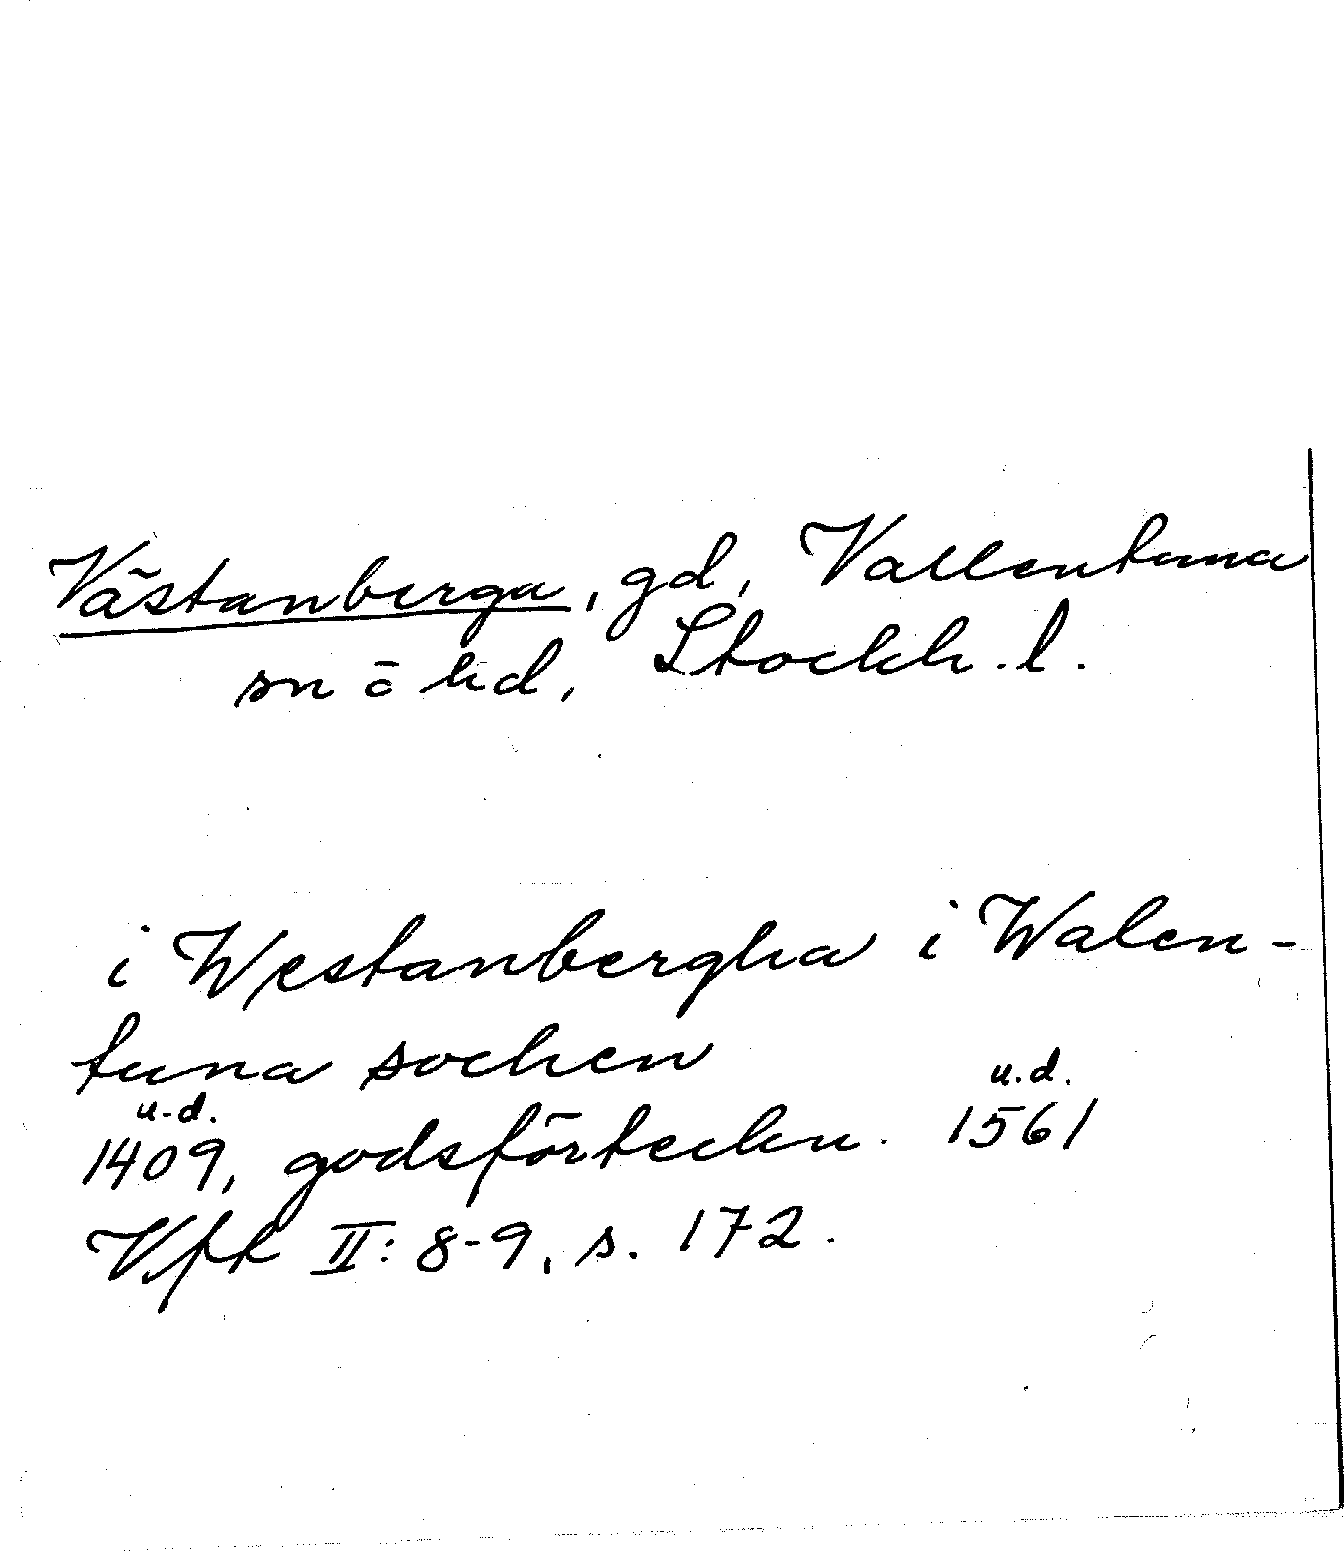 Västanberga, gd, Vallentuna
sn o hd, Stockh. l.
i Westanbergha i Walen-
tuna sochen
u.d. u.d.
1409, godsförteckn. 1561
Vfk II: 8-9, s. 172.